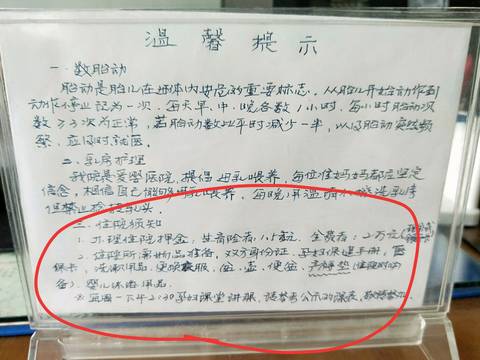 温馨提示
一.数胎动
胎动是胎儿在母体内安危的重要标志。从胎儿开始动作到
动作停止记为一次。每天早、中、晚各数1小时、每小时胎动次
数≥3次为正常,若胎动数比平时减少一半,以及胎动突然频
繁,应及时就医。
二.乳房护理
我院是爱婴医院,提倡母乳喂养,每位准妈妈都应坚定
信念,相信自己能够母乳喂养,每晚用温清水擦洗乳房
但禁止
三.住院须知
1.办理住院押金,生育险者:1.5万元 全费者:2万元
2.住院所需物品准备,双方身份证、孕妇保健手册、医
保卡、洗漱用品、更换衣服、盆、便盆、产褥垫
备)婴儿沐浴用品。
下午2:30孕妇课堂讲课,